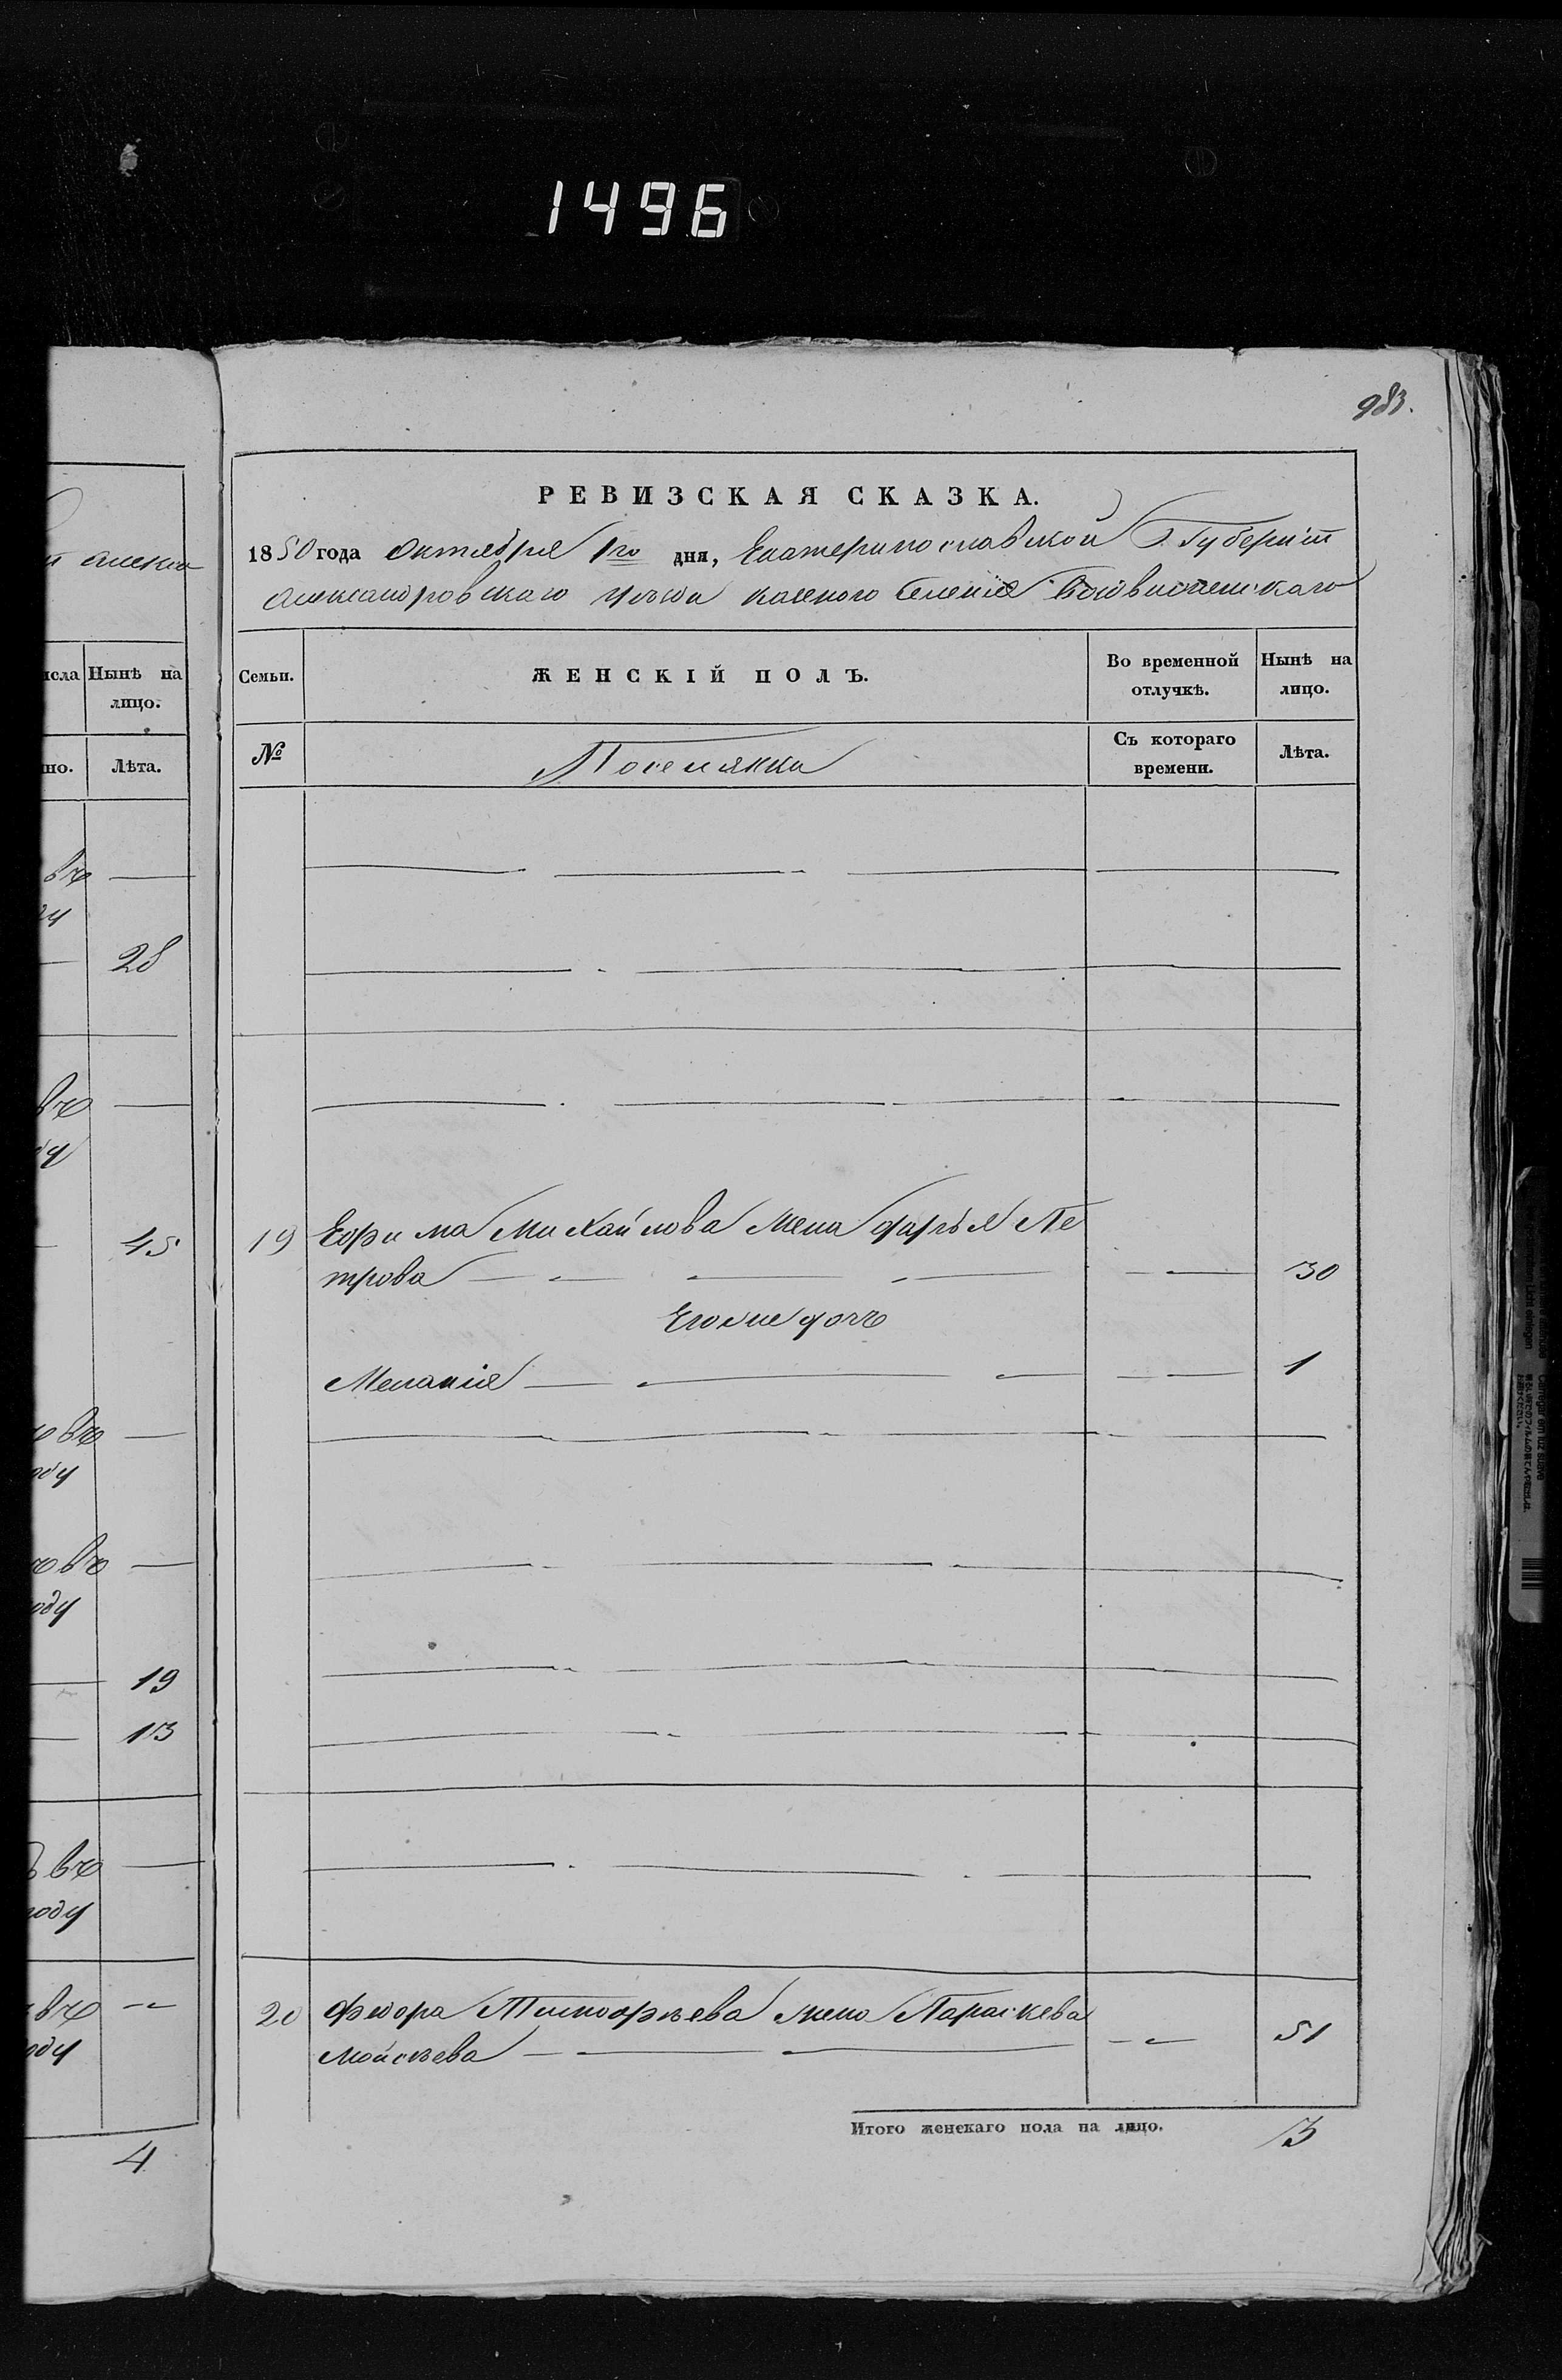 1496
983.
РЕВИЗСКАЯ СКАЗКА.
1850 года Октября 1го дня, Екатеринославской Губерніи
Александровскаго уезда казеного селенія
Семьи.
ЖЕНСКІЙ ПОЛЪ.
Во временной отлучкѣ.
Нынѣ на лицо.
№
Поселянки
Съ котораго времени.
Лѣта.
19 Ефрима Михайлова жена Дарья Пе
трова 30
Его же дочь
Меланія 1
20 Федора Тимофѣева жена Параскева
Мойсѣева 51
Итого женскаго пола на лицо. 3
Нынѣ на
лицо.
но. Лѣта.
въ
28
въ
45
въ
оду
въ
оду
19
13
въ
году
въ
оду
4